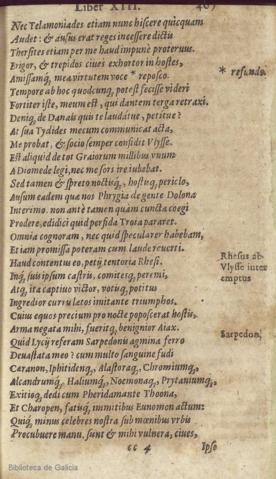 Liber XIII. 407
Nec Telamoniades etiam nunc hiscere quicquam
Audet: & ausus erat reges incessere dictis
Thersites etiam per me haud impunè proteruus.
Erigor, & trepidos ciues exhortor in hostes,
Amissamq́; mea virtutem voce * reposco.
* refundo.
Tempore ab hoc quodcunq; potest fecisse videri
Fortiter iste, meum est, qui dantem terga retraxi.
Deniq; de Danais quis te laudatue, petitue?
At sua Tydides mecum communicat acta,
Me probat, & socio semper confidit Vlysse.
Est aliquid de tot Graiorum millibus vnum
A Diomede legi, nec me sors ire iubabat.
Sed tamen & spreto noctisq́;, hostisq́; periclo,
Ausum eadem quæ nos Phrygia de gente Dolona
Interimo. non antè tamen quàm cuncta coëgi
Prodere, edidici quid perfida Troia pararet.
Omnia cognoram, nec quid specularer habebam,
Et iam promissa poteram cum laude reuerti.
Haud contentus eo, petij tentoria Rhesi,
Rhesus ab
Vlysse inter
emptus
Inq́; suis ipsum castris, comitesq́; peremi,
Atq; ita captiuo victor, votisq́; potitus
Ingredior curru lætos imitante triumphos.
Cuius equos precium pro nocte poposcerat hostis,
Arma negata mihi, fueritq́; benignior Aiax.
Quid Lycij referam Sarpedonis agmina ferro
Sarpedon.
Deuastata meo? cum multo sanguine fudi
Cæranon, Iphitidenq́;, Alastoraq́;, Chromiumq́;,
Alcandrumq́;, Haliumq́;, Noemonaq́;, Prytanimq́;,
Exitioq́; dedi cum Pheridamante Thoona,
Et Charopen, fatisq́; immitibus Eunomon actum:
Quiq́; minus celebres nostra sub mœnibus vrbis
Procubuere manu. sunt & mihi vulnera, ciues,
cc 4 Ipso
Biblioteca de Galicia